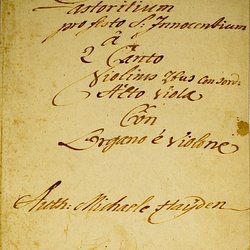 Pastoritium
pro festo S: Innocentium
à
2 Canto
Violinis 2bus con sord:
Alto Viola
Con
Organo è Violone
Auth: Michaele Hayden